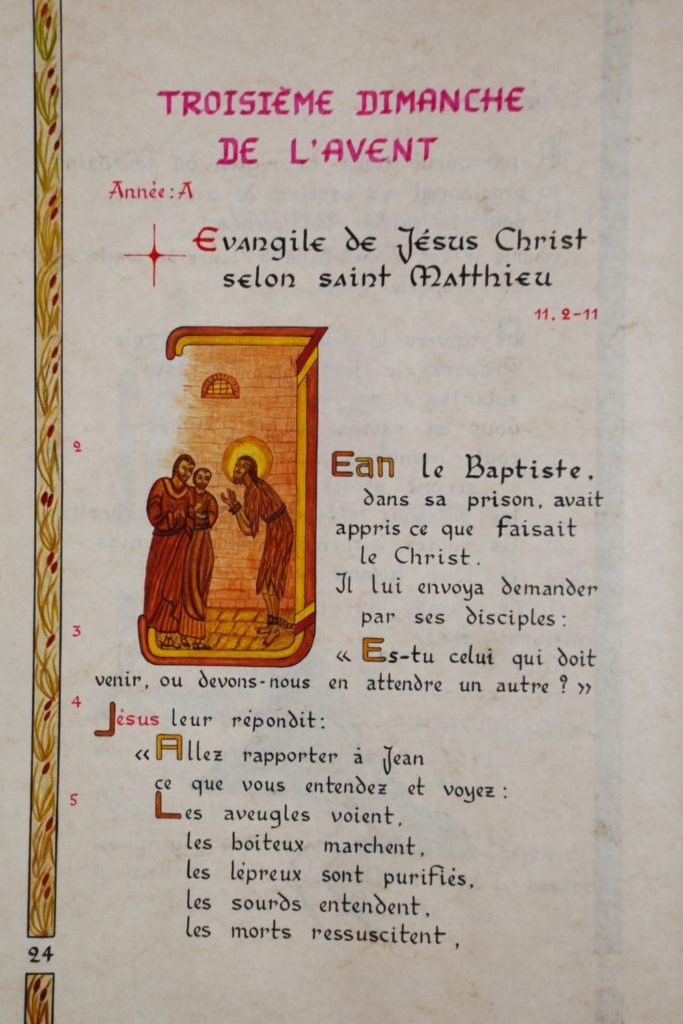 TROISIÈME DIMANCHE
DE L'AVENT
Année: A
Evangile de Jésus Christ
selon saint Matthieu
11, 2-11
2
JEan le Baptiste,
dans sa prison, avait
appris ce que faisait
le Christ.
Il lui envoya demander
par ses disciples:
3
« Es-tu celui qui doit
venir, ou devons-nous en attendre un autre ? »
4
Jésus leur répondit:
« Allez rapporter à Jean
ce que vous entendez et voyez:
5
Les aveugles voient,
les boiteux marchent,
les lépreux sont purifiés,
les sourds entendent,
les morts ressuscitent,
24